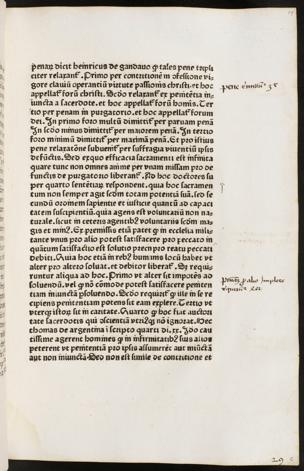 penaꝝ dicit heinricus de gandauo ꝙ tales pene tripli
citer relaxant᷑. Primo per contritionē in ꝯfessione vi
gore clauiū operantiū virtute passionis christi⁊ et hoc
appellat᷑ forū christi. Scďo relaxant᷑ ex penitētia in⸗
iuncta a sacerdote. et hoc appellat᷑ forū homīs. Ter
tio per penam in purgatorio. et hoc appellat᷑ forum
dei. In primo foro multū dimittit᷑ per paruam penā
In scďo minus dimittit᷑ per maiorem penā. In tertio
foro minimū dimittit᷑ per maximā penā. Et pro istius
pene relaxatōne subueniūt᷑ per suffragia viuentiū ipsis
defūctis. Sed ex quo efficacia sacramenti est infinita
quare tunc non omnes anime per vnam missam pro de
functis de purgatorio liberant᷑. Ad hoc doctores su
per quarto sententiaꝝ respondent. qua hoc sacramen
tum non semper agit scďm totam potentiā suā. sed se
cundū ordinem sapientie et iusticie quantū ad capaci
tatem suscipientiū. quia agens est voluntariū non na
turale. sicut in ceteris agentibꝰ voluntarijs scďm ma
gis et minꝰ. Ex premissis etiā patet ꝙ in ecclesia mili⸗
tante vnus pro alio potest satisfacere pro peccato in
quātum satisfactio est solutio precij pro reatu peccati
debiti. Quia hoc etiā in rebꝰ humanis locū habet vt
alter pro altero soluat. et debitor liberat᷑. Et requi
runtur aliqua ad hoc. Primo vt alter sit impotēs ad
soluendū. vel ꝙ nō cōmode potest satisfacere peniten
tiam iniunctā ꝑsoluendo. Scďo requirit᷑ ꝙ ille in se re
cipiens penitentiam potens sit eam explere. Tertio vt
vterqꝫ istoꝝ sit in caritate. Quarto ꝙ hoc fiat auctori
tate sacerdotis qui ꝯscientiā vtriusqꝫ nō ignorat. Hec
thomas de argentina ī scripto quarti di. xx. Ido cau
tissime agerent homines ꝙ in infirmitatibꝰ suis alios
peterent vt penitentiā pro ipsis assumerēt aut iniūctā
aut non iniunctā. Sed non est simile de contritione et